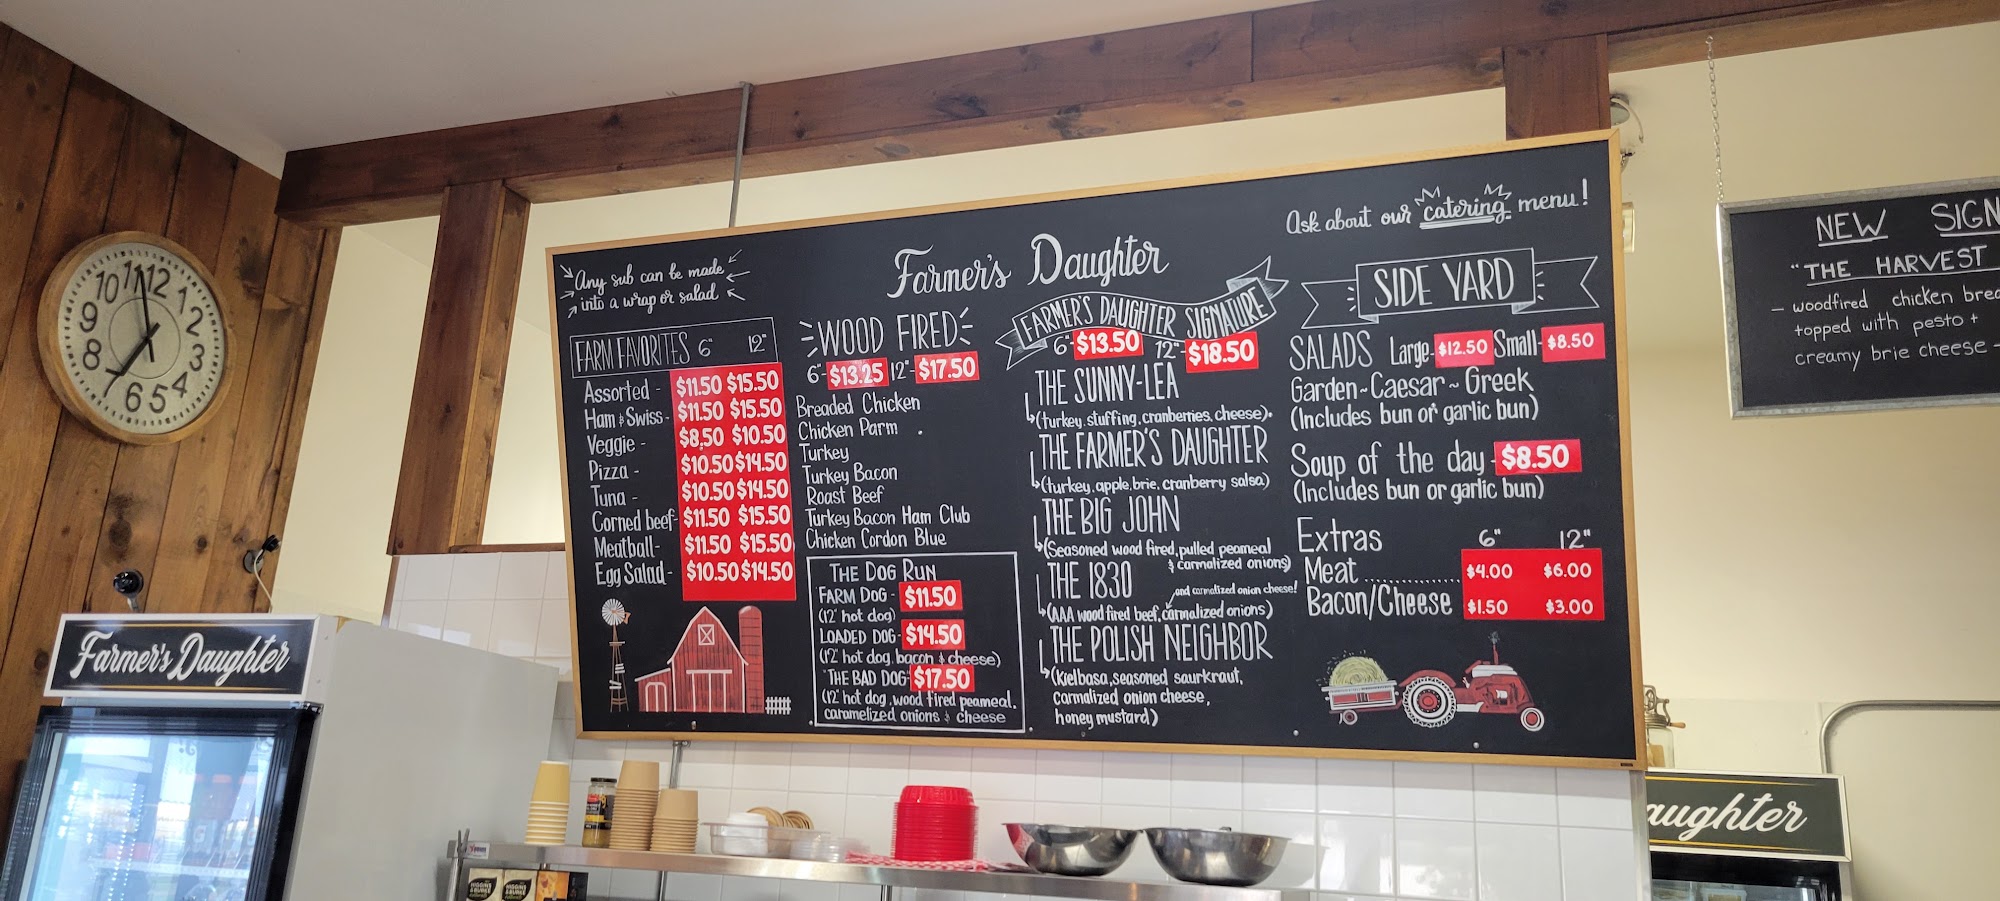 10 11 12 1 2 3 4 5 6 7 8 9
Farmer's Daughter
Any sub can be made
into a wrap or salad
Farmer's Daughter
Ask about our catering menu!
FARM FAVORITES 6" 12"
Assorted - $11.50 $15.50
Ham & Swiss - $11.50 $15.50
Veggie - $8.50 $10.50
Pizza - $10.50 $14.50
Tuna - $10.50 $14.50
Corned beef - $11.50 $15.50
Meatball - $11.50 $15.50
Egg Salad - $10.50 $14.50
WOOD FIRED
6" - $13.25 12" - $17.50
Breaded Chicken
Chicken Parm
Turkey
Turkey Bacon
Roast Beef
Turkey Bacon Ham Club
Chicken Cordon Blue
THE DOG RUN
FARM DOG - $11.50
(12" hot dog)
LOADED DOG - $14.50
(12" hot dog, bacon & cheese)
"THE BAD DOG" $17.50
(12" hot dog, wood fired peameal,
caramelized onions & cheese
FARMER'S DAUGHTER SIGNATURE
6" - $13.50 12" - $18.50
THE SUNNY-LEA
(turkey, stuffing, cranberries, cheese).
THE FARMER'S DAUGHTER
(turkey, apple, brie, cranberry salsa)
THE BIG JOHN
(Seasoned wood fired, pulled peameal
& carmalized onions)
THE 1830
and carmalized onion cheese!
(AAA wood fired beef, carmalized onions)
THE POLISH NEIGHBOR
(Kielbasa, seasoned saurkraut,
carmalized onion cheese,
honey mustard)
SIDE YARD
SALADS Large - $12.50 Small - $8.50
Garden ~ Caesar ~ Greek
(Includes bun or garlic bun)
Soup of the day - $8.50
(Includes bun or garlic bun)
Extras 6" 12"
Meat .............. $4.00 $6.00
Bacon/Cheese $1.50 $3.00
NEW SIGN
"THE HARVEST
- woodfired chicken brea
topped with pesto +
creamy brie cheese -
aughter
HIGGINS & BURKE
HIGGINS & BURKE